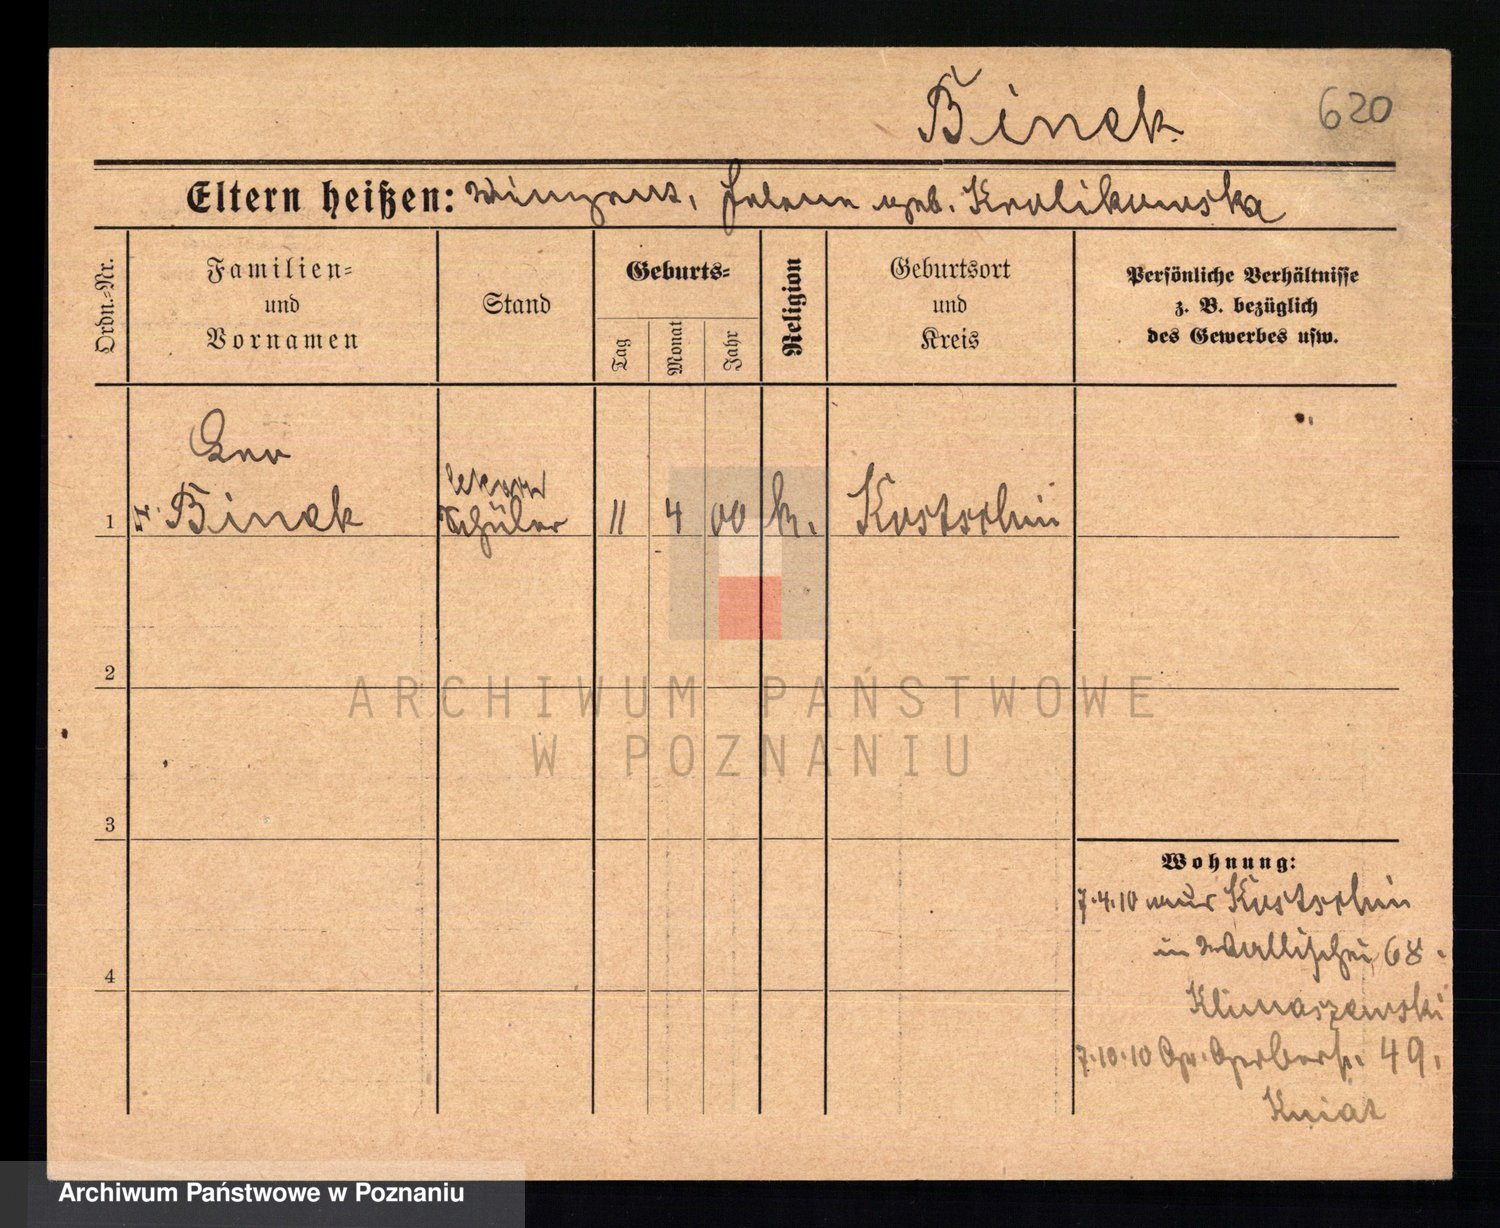 Binek
620
Eltern heißen: Winzent, Helene geb. Krolikowska
Ordn.-Nr.
Familien-
und
Vornamen
Stand
Geburts-
Tag
Monat
Jahr
Religion
Geburtsort
und
Kreis
Persönliche Verhältnisse
z. B. bezüglich
des Gewerbes usw.
Leo
1 Binek Schüler 11 4 00 k. Kostschin
2
3
4
Wohnung:
7.4.10 aus Kostschin
in Wallischei 68.
Klimaszewski
7.10.10 Gr. Gerberst. 49.
Kniat
ARCHIWUM PAŃSTWOWE
W POZNANIU
Archiwum Państwowe w Poznaniu